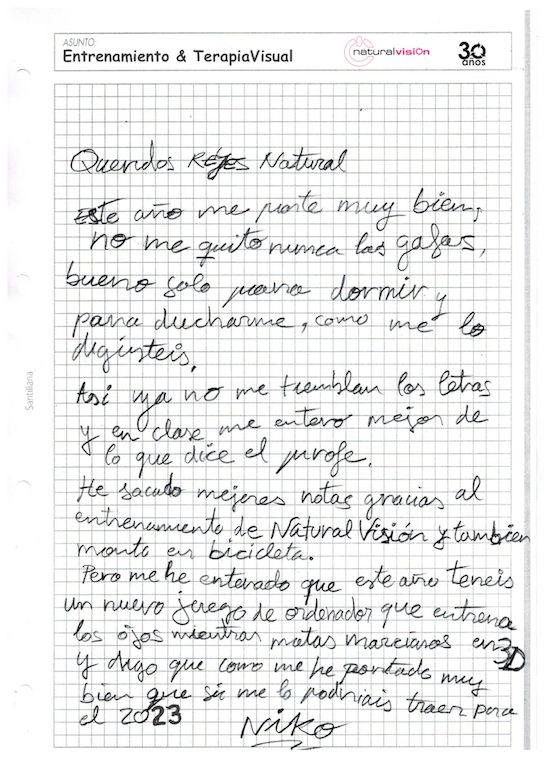 ASUNTO:
Entrenamiento & TerapiaVisual
naturalvisiOn
30
años
Queridos REyES Natural
Este año me porte muy bien,
no me quito nunca las gafas,
bueno solo para dormir y
para ducharme, como me lo
degisteis.
Asi ya no me tremblan las letras
y en clase me entero mejor de
lo que dice el profe.
He sacado mejores notas gracias al
entrenamiento de Natural Visión y tambien
monto en bicicleta.
Pero me he enterado que este año teneis
un nuevo juego de ordenador que entrena
los ojos mientras matas marcianos en 3D
y digo que como me he portado muy
bien que si me lo podriais traer para
el 2023
Niko
Santillana